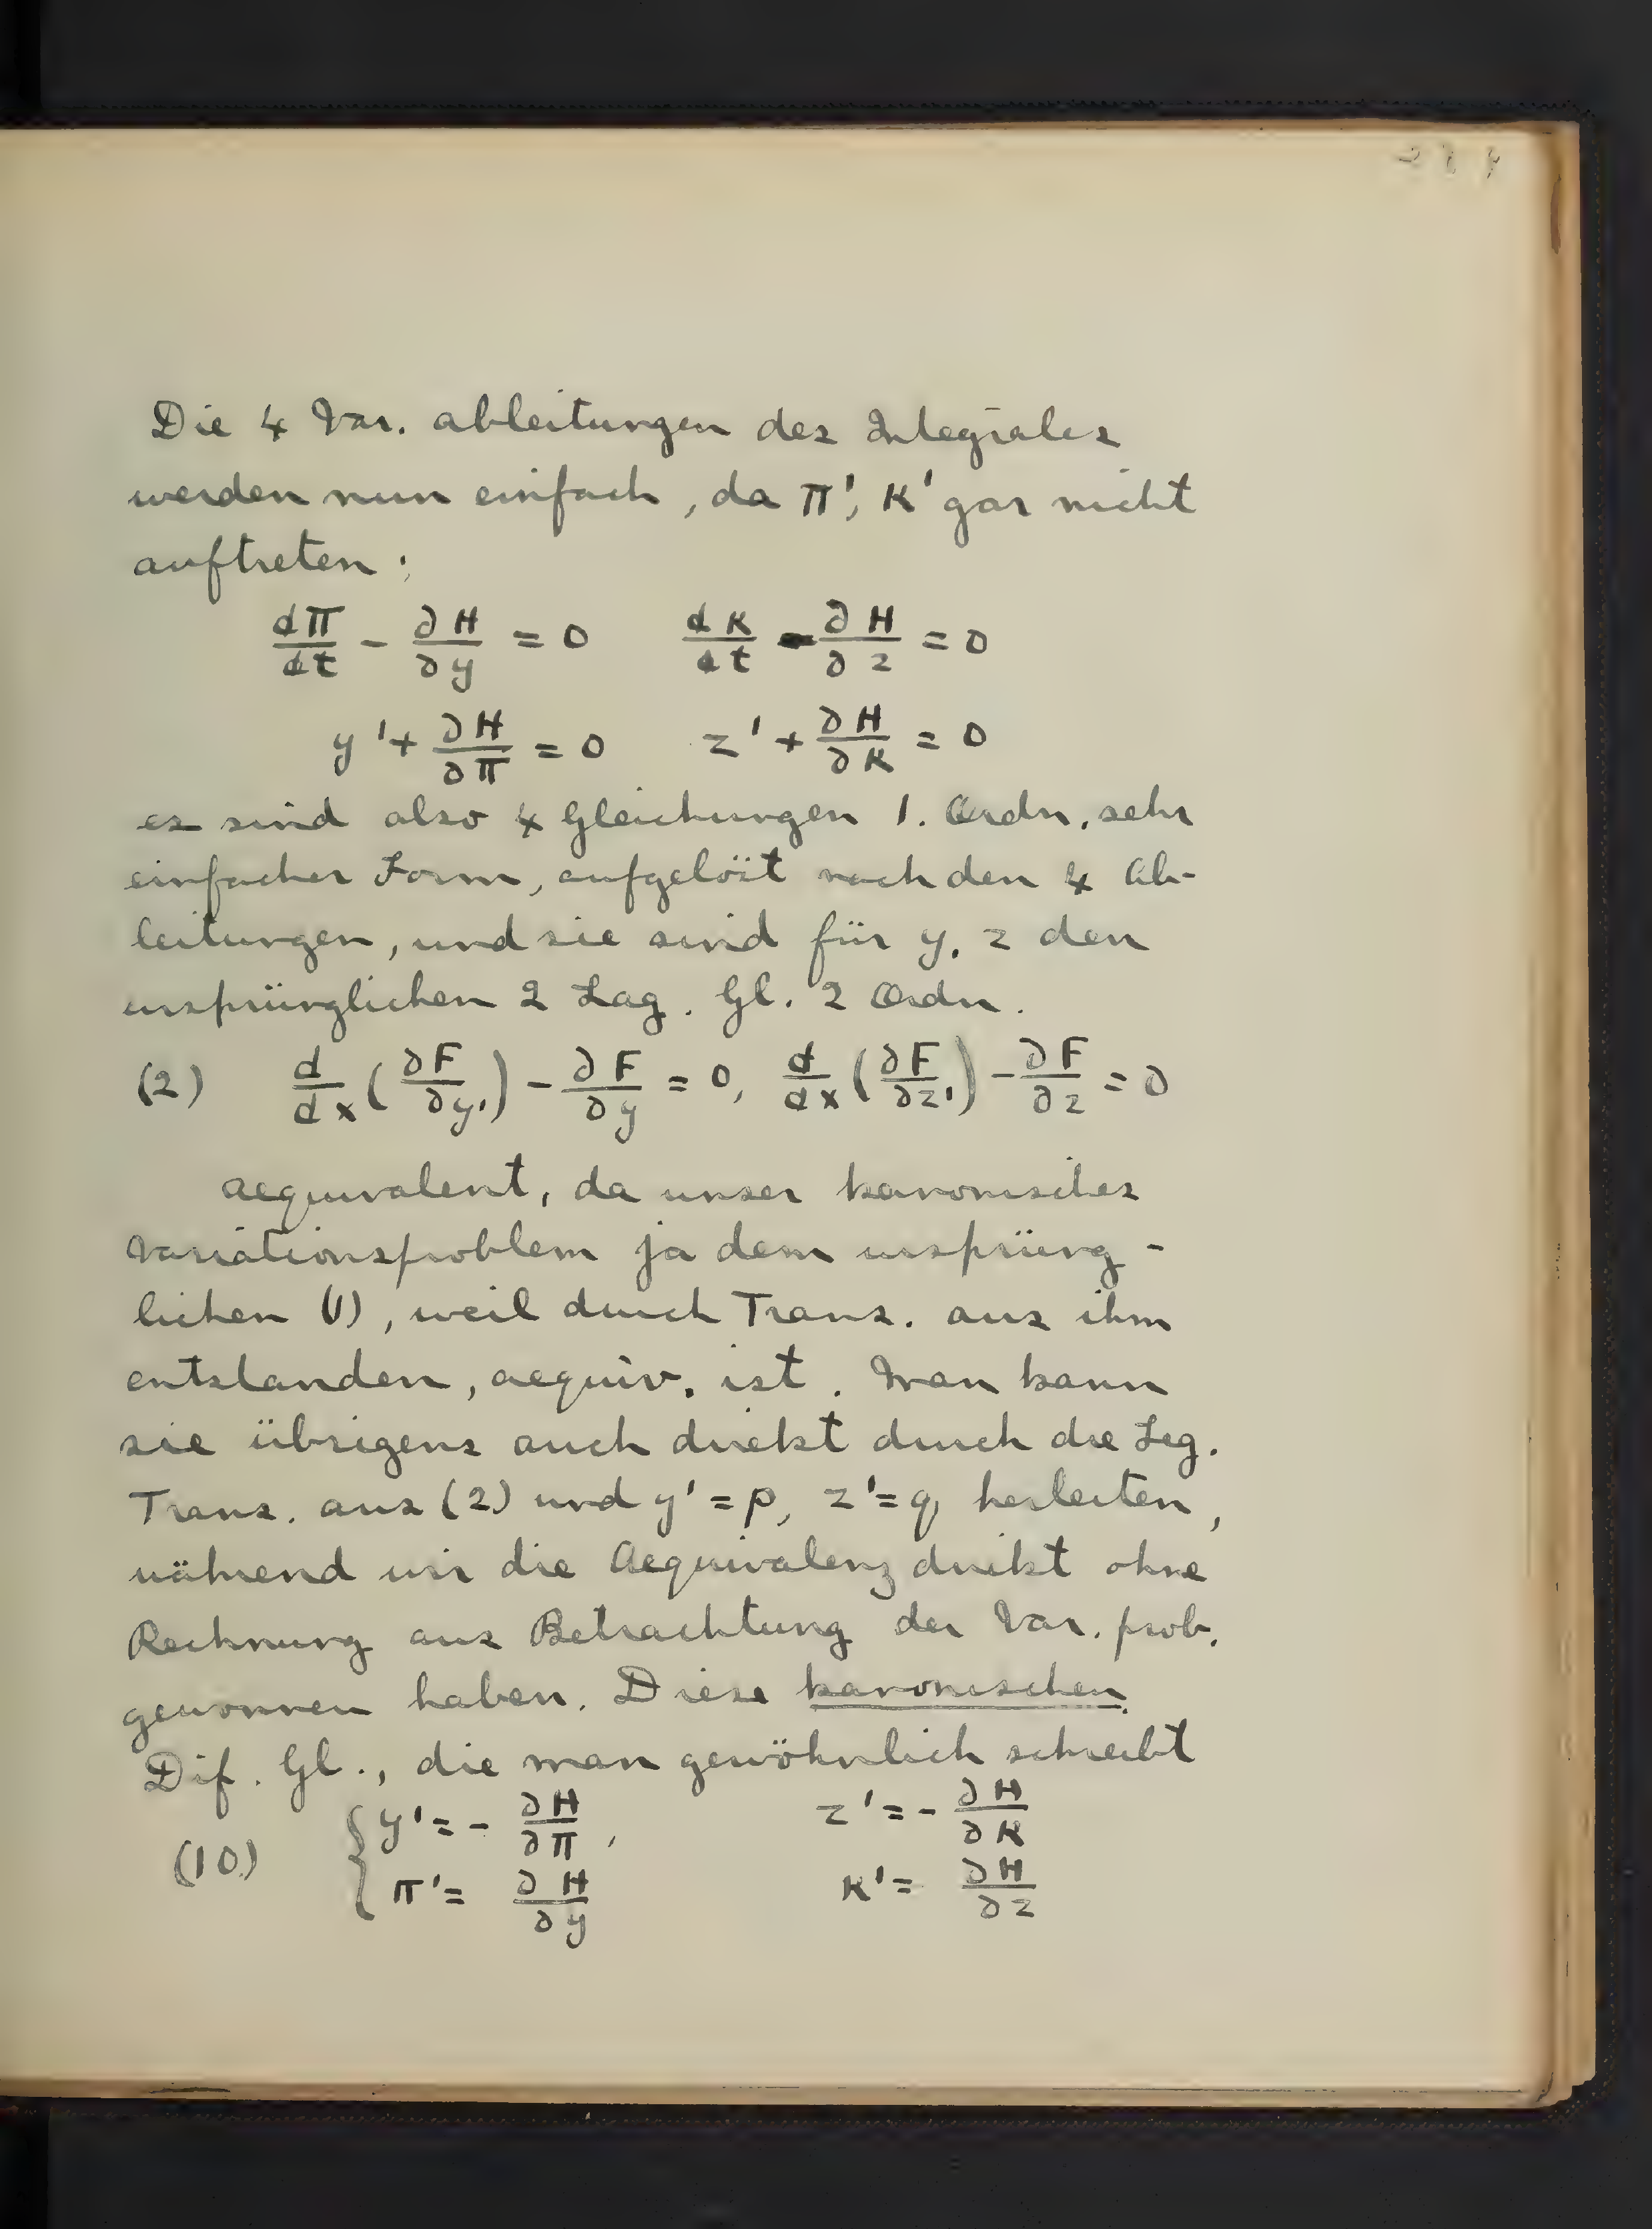 Die 4 Var. ableitungen des Integrales
werden nun einfach, da π', κ' gar nicht
auftreten:
dπ/dt - ∂H/∂y = 0   dκ/dt - ∂H/∂z = 0
y' + ∂H/∂π = 0   z' + ∂H/∂κ = 0
es sind also 4 Gleichungen 1. Ordn. sehr
einfacher Form, aufgelöst nach den 4 Ab-
leitungen, und sie sind für y, z den
ursprünglichen 2 Lag. Gl. 2 Ordn.
(2) d/dx (∂F/∂y') - ∂F/∂y = 0, d/dx (∂F/∂z') - ∂F/∂z = 0
aequivalent, da unser kanonisches
Variationsproblem ja dem ursprüng-
lichen (1), weil durch Trans. aus ihm
entstanden, aequiv. ist. Man kann
sie übrigens auch direkt durch die Leg.
Trans. aus (2) und y' = p, z' = q herleiten,
während wir die Aequivalenz direkt ohne
Rechnung aus Betrachtung der Var. prob.
gewonnen haben. Diese kanonischen
Dif. Gl., die man gewöhnlich schreibt
(10) { y' = - ∂H/∂π,   z' = - ∂H/∂κ
π' = ∂H/∂y   κ' = ∂H/∂z